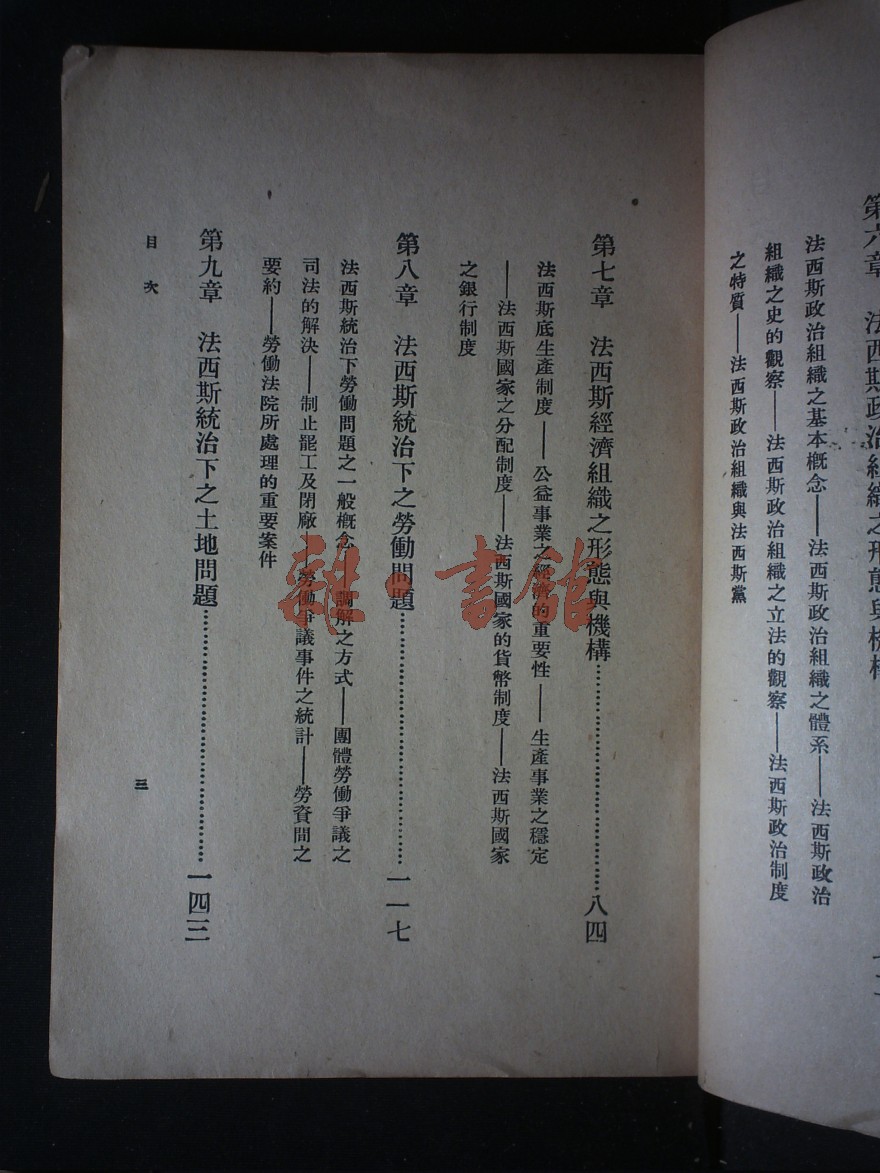 第六章　法西斯政治組織之形態與機構
法西斯政治組織之基本概念——法西斯政治組織之體系——法西斯政治
組織之史的觀察——法西斯政治組織之立法的觀察——法西斯政治制度
之特質——法西斯政治組織與法西斯黨
第七章　法西斯經濟組織之形態與機構……………………八四
法西斯底生產制度——公益事業之經濟的重要性——生產事業之穩定
——法西斯國家之分配制度——法西斯國家的貨幣制度——法西斯國家
之銀行制度
第八章　法西斯統治下之勞働問題……………………一一七
法西斯統治下勞働問題之一般概念——調解之方式——團體勞働爭議之
司法的解決——制止罷工及閉廠——勞働爭議事件之統計——勞資間之
要約——勞働法院所處理的重要案件
第九章　法西斯統治下之土地問題……………………一四三
目次
三
雜·書館